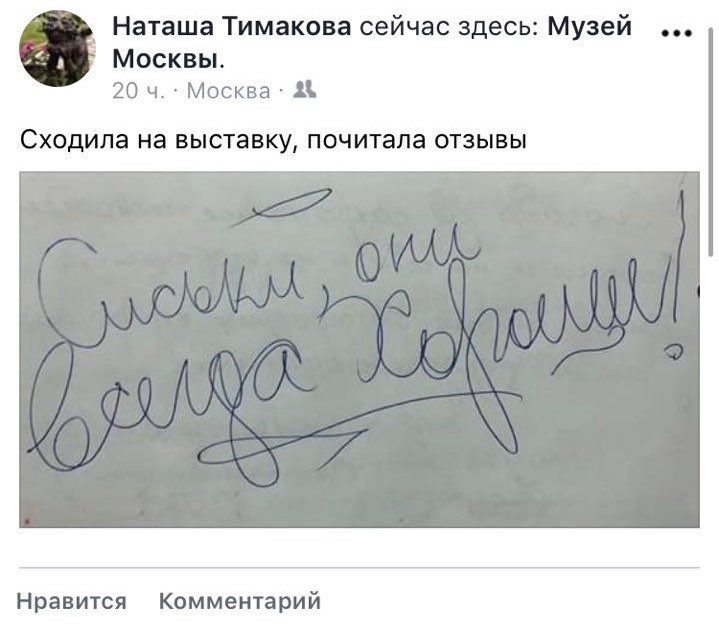 Наташа Тимакова сейчас здесь: Музей
Москвы.
20 ч. · Москва ·
Сходила на выставку, почитала отзывы
Сиськи, они
всегда хороши!
Нравится Комментарий